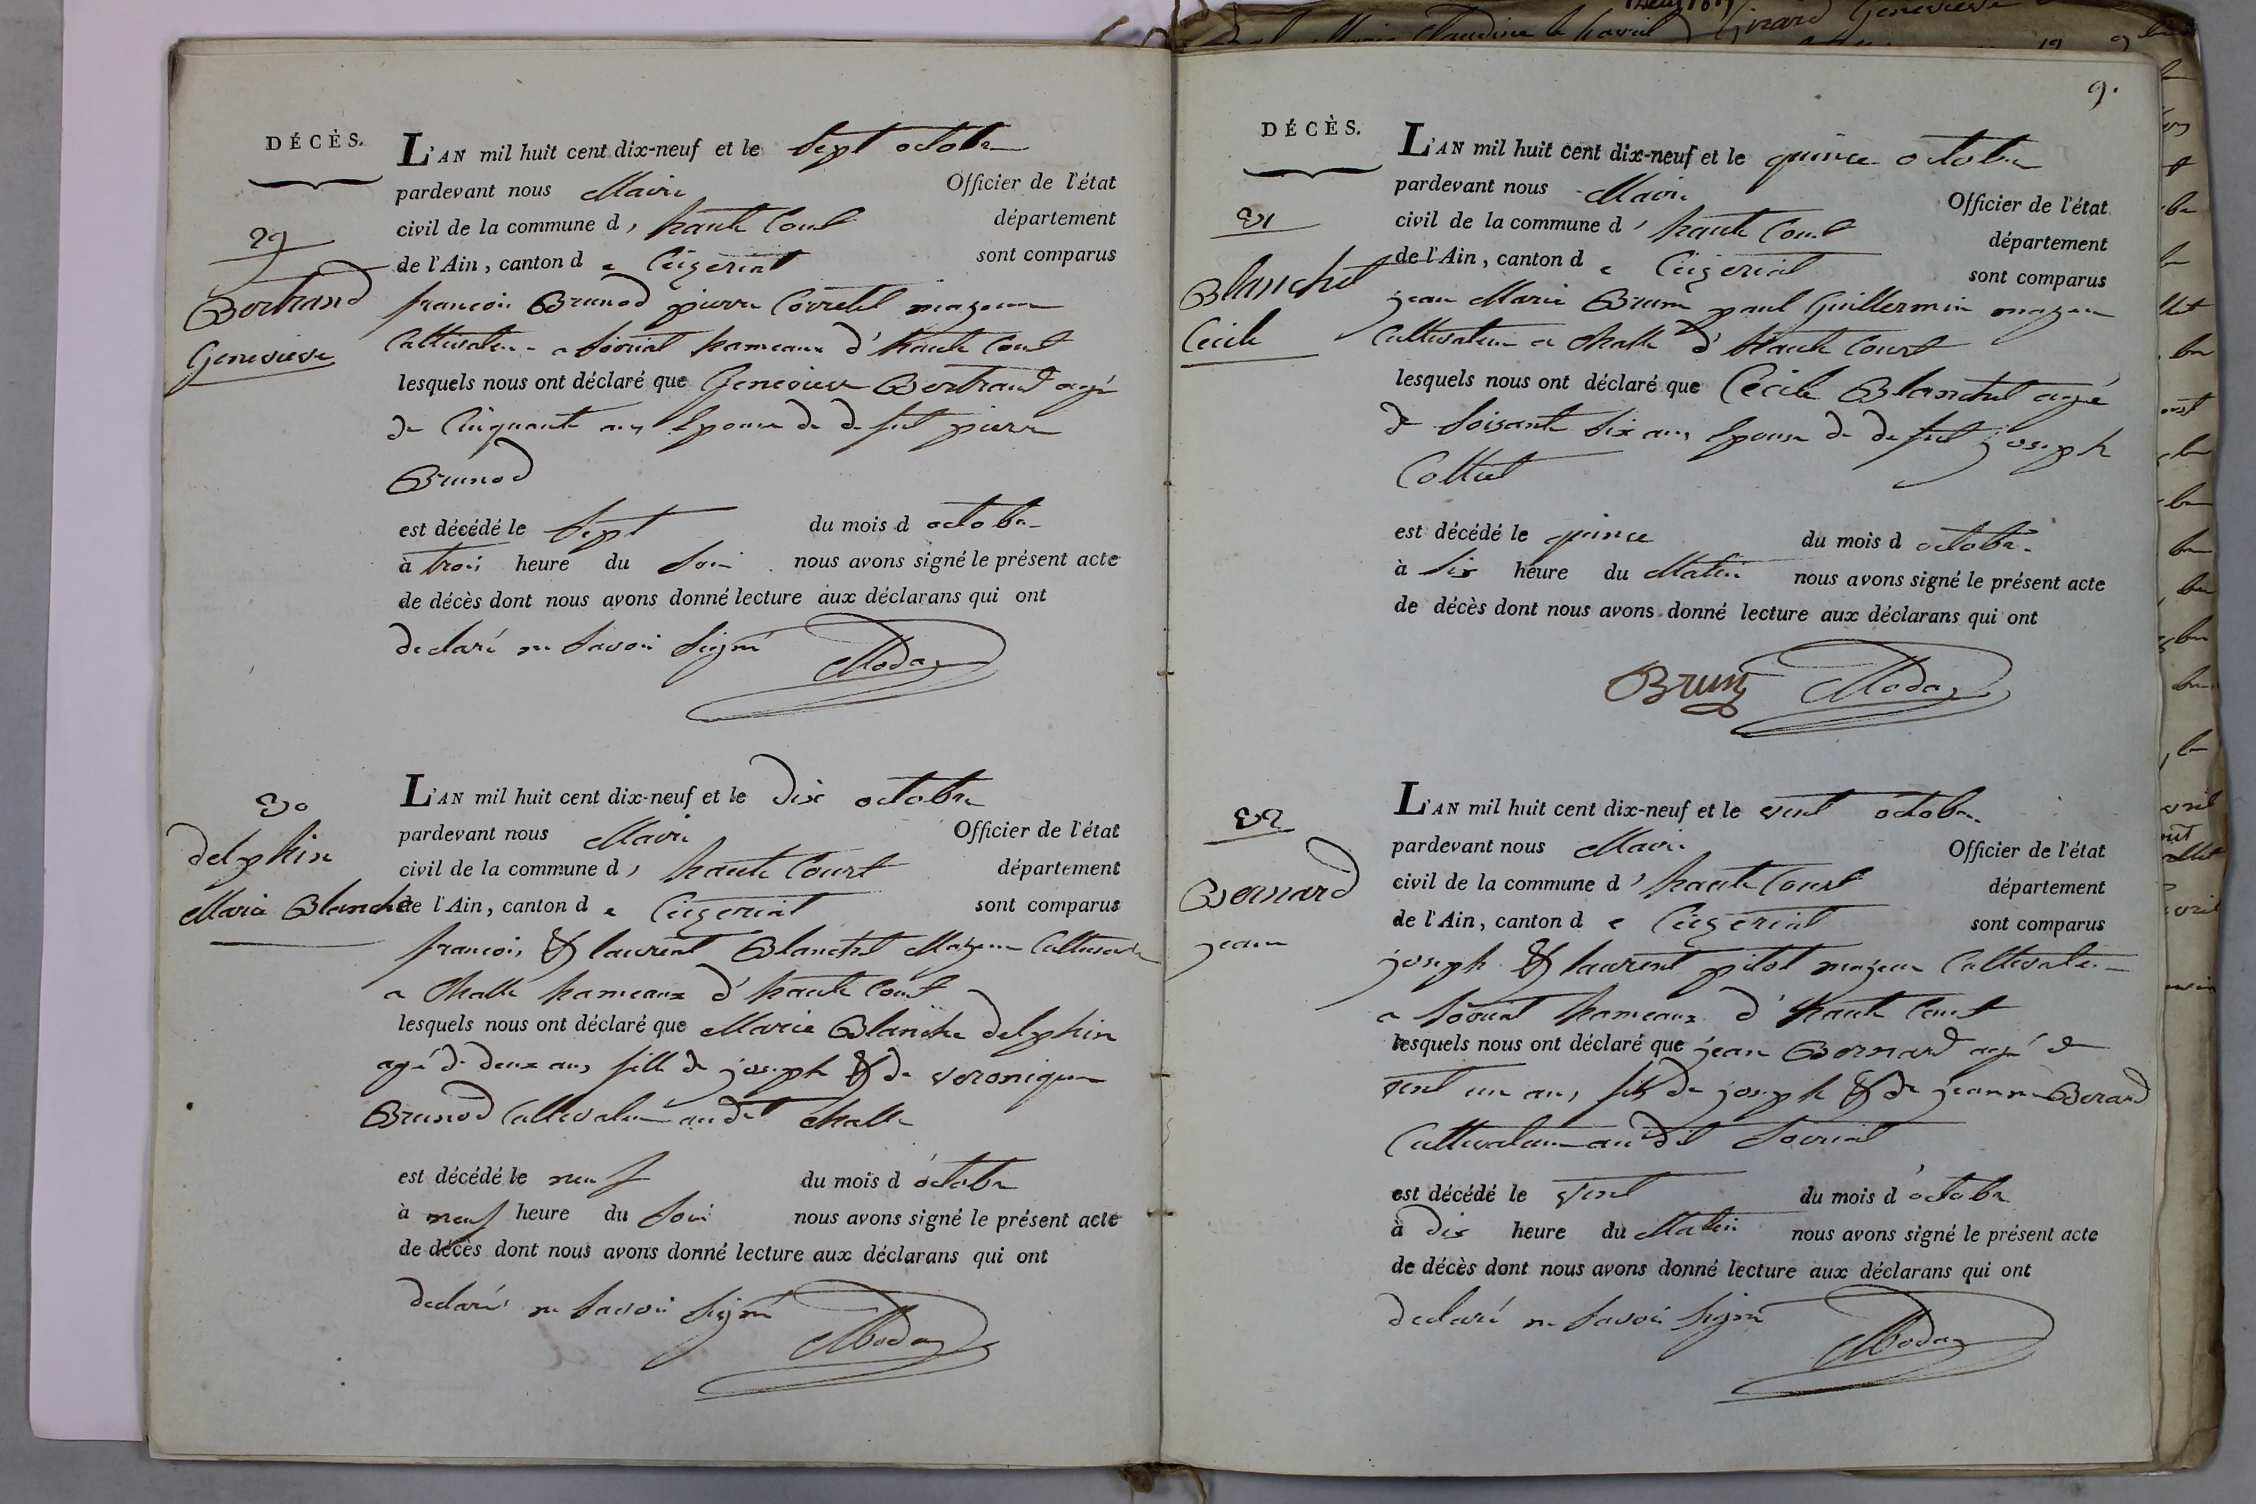 DÉCÈS.
L'AN mil huit cent dix-neuf et le Sept octobre
pardevant nous Maire Officier de l'état
civil de la commune d' haute Court département
de l'Ain, canton d e Ceizeriat sont comparus
29
Bertrand
Genevieve
francois Brunod pierre Corretel majeur
Cultivateur a hameaux d'haute Court
lesquels nous ont déclaré que Genevieve Bertrand agé
de Cinquante ans Epouse de defut pierre
Brunod
est décédé le Sept du mois d octobre
à trois heure du Soir nous avons signé le présent acte
de décès dont nous avons donné lecture aux déclarans qui ont
declaré ne Savoir Signé Moda
30
delphin
Marie Blanche
L'AN mil huit cent dix-neuf et le dix octobre
pardevant nous Maire Officier de l'état
civil de la commune d' haute Court département
de l'Ain, canton d e Ceizeriat sont comparus
francois & laurent Blanchet Majeur Cultivateur
a Challe hameaux d'haute Court
lesquels nous ont déclaré que Marie Blanche delphin
agé de deux ans fille de joseph & de veronique
Brunod Cultivateur audit Challe
est décédé le neuf du mois d octobre
à neuf heure du Soir nous avons signé le présent acte
de décès dont nous avons donné lecture aux déclarans qui ont
declaré ne Savoir Signé Moda
9.
DÉCÈS.
L'AN mil huit cent dix-neuf et le quince octobre
pardevant nous Maire Officier de l'état
civil de la commune d' haute Court département
de l'Ain, canton d e Ceizeriat sont comparus
31
Blanchet
Cecile
jean Marie Brun paul Guillermin majeur
Cultivateur a Challe d'haute Court
lesquels nous ont déclaré que Cécile Blanchet agé
de Soisante Six ans Epouse de defut joseph
Collet
est décédé le quince du mois d octobre
à Six heure du Matin nous avons signé le présent acte
de décès dont nous avons donné lecture aux déclarans qui ont
Brun Moda
32
Bernard
jean
L'AN mil huit cent dix-neuf et le vent octobre
pardevant nous Maire Officier de l'état
civil de la commune d' haute Court département
de l'Ain, canton d e Ceizeriat sont comparus
joseph & laurent pitot majeur Cultivateur
a hameaux d'haute Court
lesquels nous ont déclaré que jean Bernard agé de
vent un ans fils de joseph & de jeanne Berard
Cultivateur audit
est décédé le vent du mois d octobre
à dix heure du Matin nous avons signé le présent acte
de décès dont nous avons donné lecture aux déclarans qui ont
declaré ne Savoir Signé Moda